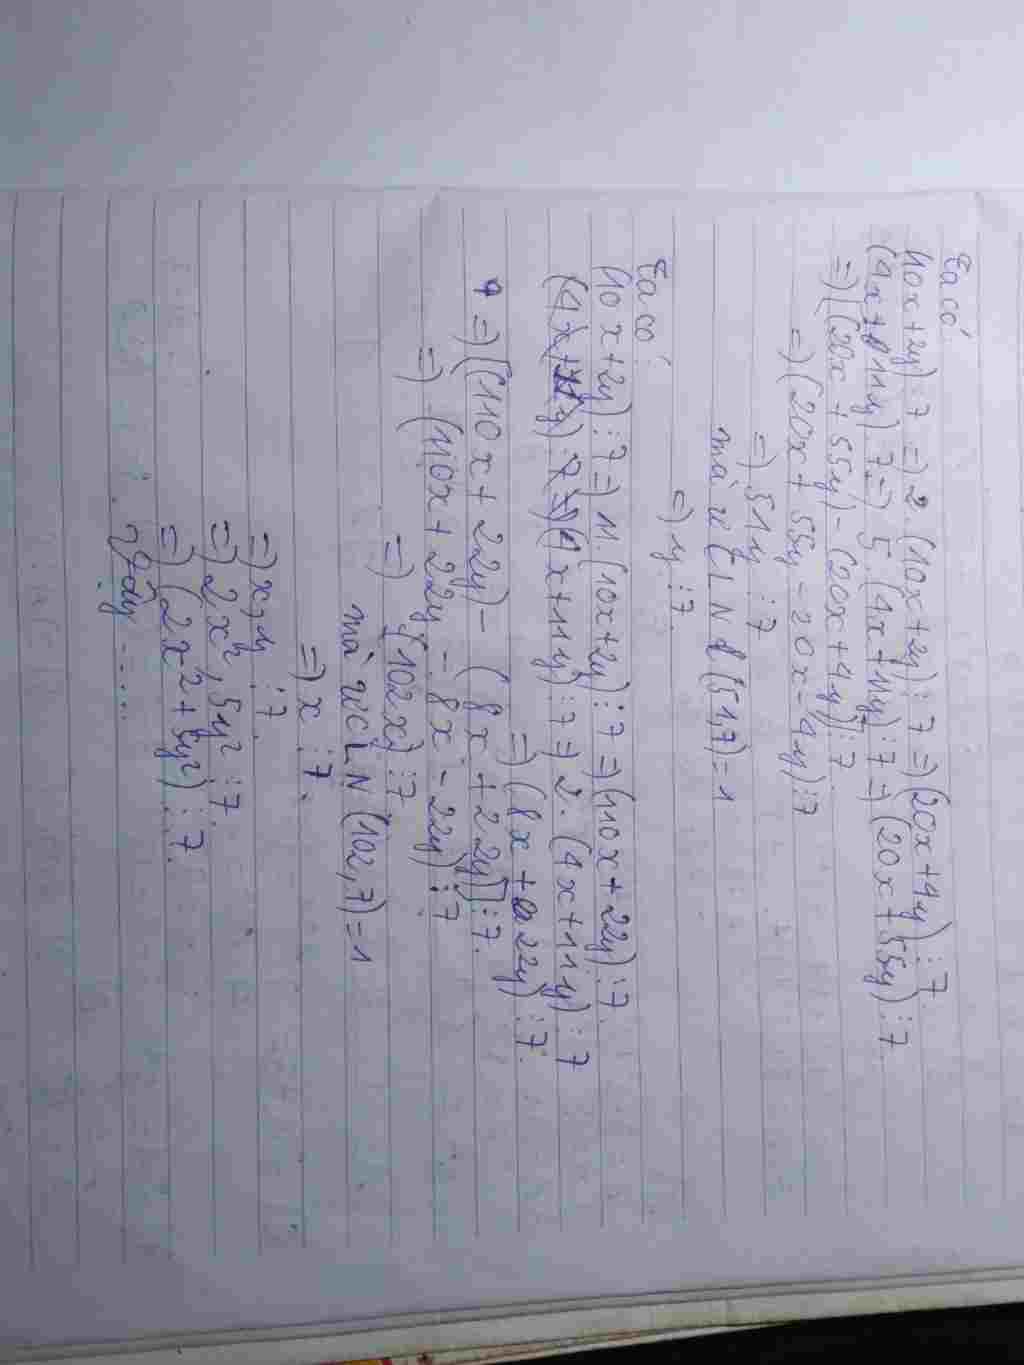 Ta có:
(10x+2y)⋮7 =) 2.(10x+2y)⋮7 =) (20x+4y)⋮7.
(4x+11y)⋮7 =) 5.(4x+11y)⋮7 =) (20x+55y)⋮7.
=) [(20x+55y)-(20x+4y)]⋮7.
=) (20x+55y-20x-4y)⋮7
=) 51y⋮7
mà ƯCLN (51,7)=1
=) y⋮7.
Ta có:
(10x+2y)⋮7 =) 11.(10x+2y)⋮7 =) (110x+22y)⋮7.
(4x+11y)⋮7 =) 2.(4x+11y)⋮7
=) (8x+22y)⋮7.
=) [(110x+22y)-(8x+22y)]⋮7.
=) (110x+22y-8x-22y)⋮7
=) (102x)⋮7
mà ƯCLN (102,7)=1
=) x⋮7.
=) x,y⋮7.
=) 2x²,5y²⋮7.
=) (2x²+5y²)⋮7.
Vậy .....